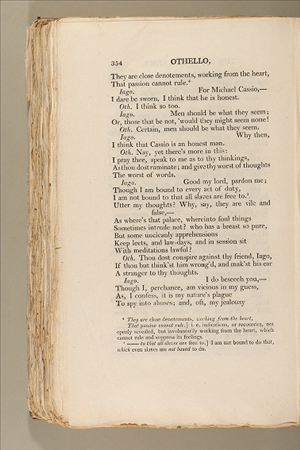 354 OTHELLO,
They are close denotements, working from the heart,
That passion cannot rule.⁴
Iago. For Michael Cassio,—
I dare be sworn, I think that he is honest.
Oth. I think so too.
Iago. Men should be what they seem;
Or, those that be not, 'would they might seem none!
Oth. Certain, men should be what they seem.
Iago. Why then,
I think that Cassio is an honest man.
Oth. Nay, yet there's more in this:
I pray thee, speak to me as to thy thinkings,
As thou dost ruminate; and give thy worst of thoughts
The worst of words.
Iago. Good my lord, pardon me;
Though I am bound to every act of duty,
I am not bound to that all slaves are free to.⁵
Utter my thoughts? Why, say, they are vile and
false,—
As where's that palace, whereinto foul things
Sometimes intrude not? who has a breast so pure,
But some uncleanly apprehensions
Keep leets, and law-days, and in session sit
With meditations lawful?
Oth. Thou dost conspire against thy friend, Iago,
If thou but think'st him wrong'd, and mak'st his ear
A stranger to thy thoughts.
Iago. I do beseech you,—
Though I, perchance, am vicious in my guess,
As, I confess, it is my nature's plague
To spy into abuses; and, oft, my jealousy
⁴ They are close denotements, working from the heart,
That passion cannot rule.] i. e. indications, or recoveries, not
openly revealed, but involuntarily working from the heart, which
cannot rule and suppress its feelings.
⁵ —— to that all slaves are free to.] I am not bound to do that,
which even slaves are not bound to do.